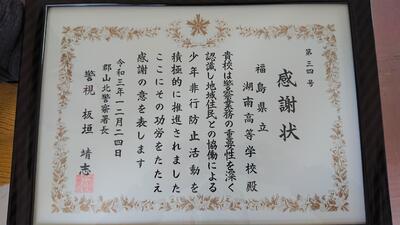 第三四号
感謝状
福島県立
湖南高等学校殿
貴校は警察業務の重要性を深く
認識し地域住民との協働による
少年非行防止活動を
積極的に推進されました
ここにその功労をたたえ
感謝の意を表します
令和三年一二月二四日
郡山北警察署長
警視 板垣 靖志